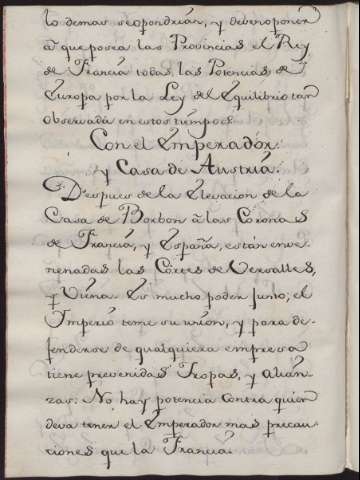 lo demas se opondrian, y deven oponer
à que posea las Provincias el Rey
de Francia todas las Potencias de
Europa por la Ley del Equilibrio tan
observada en estos tiempos.
Con el Emperador
y Casa de Austria.
Despues de la Elevacion de la
Casa de Borbon à las Coronas
de Francia, y España, están enve-
nenadas las Córtes de Versalles,
y Viena. Es mucho poder junto; el
Imperio teme su union, y para de-
fenderse de qualquiera empresa
tiene prevenidas Tropas, y alian-
zas: No hay potencia contra quien
deva tener el Emperador mas precau-
ciones que la Francia.